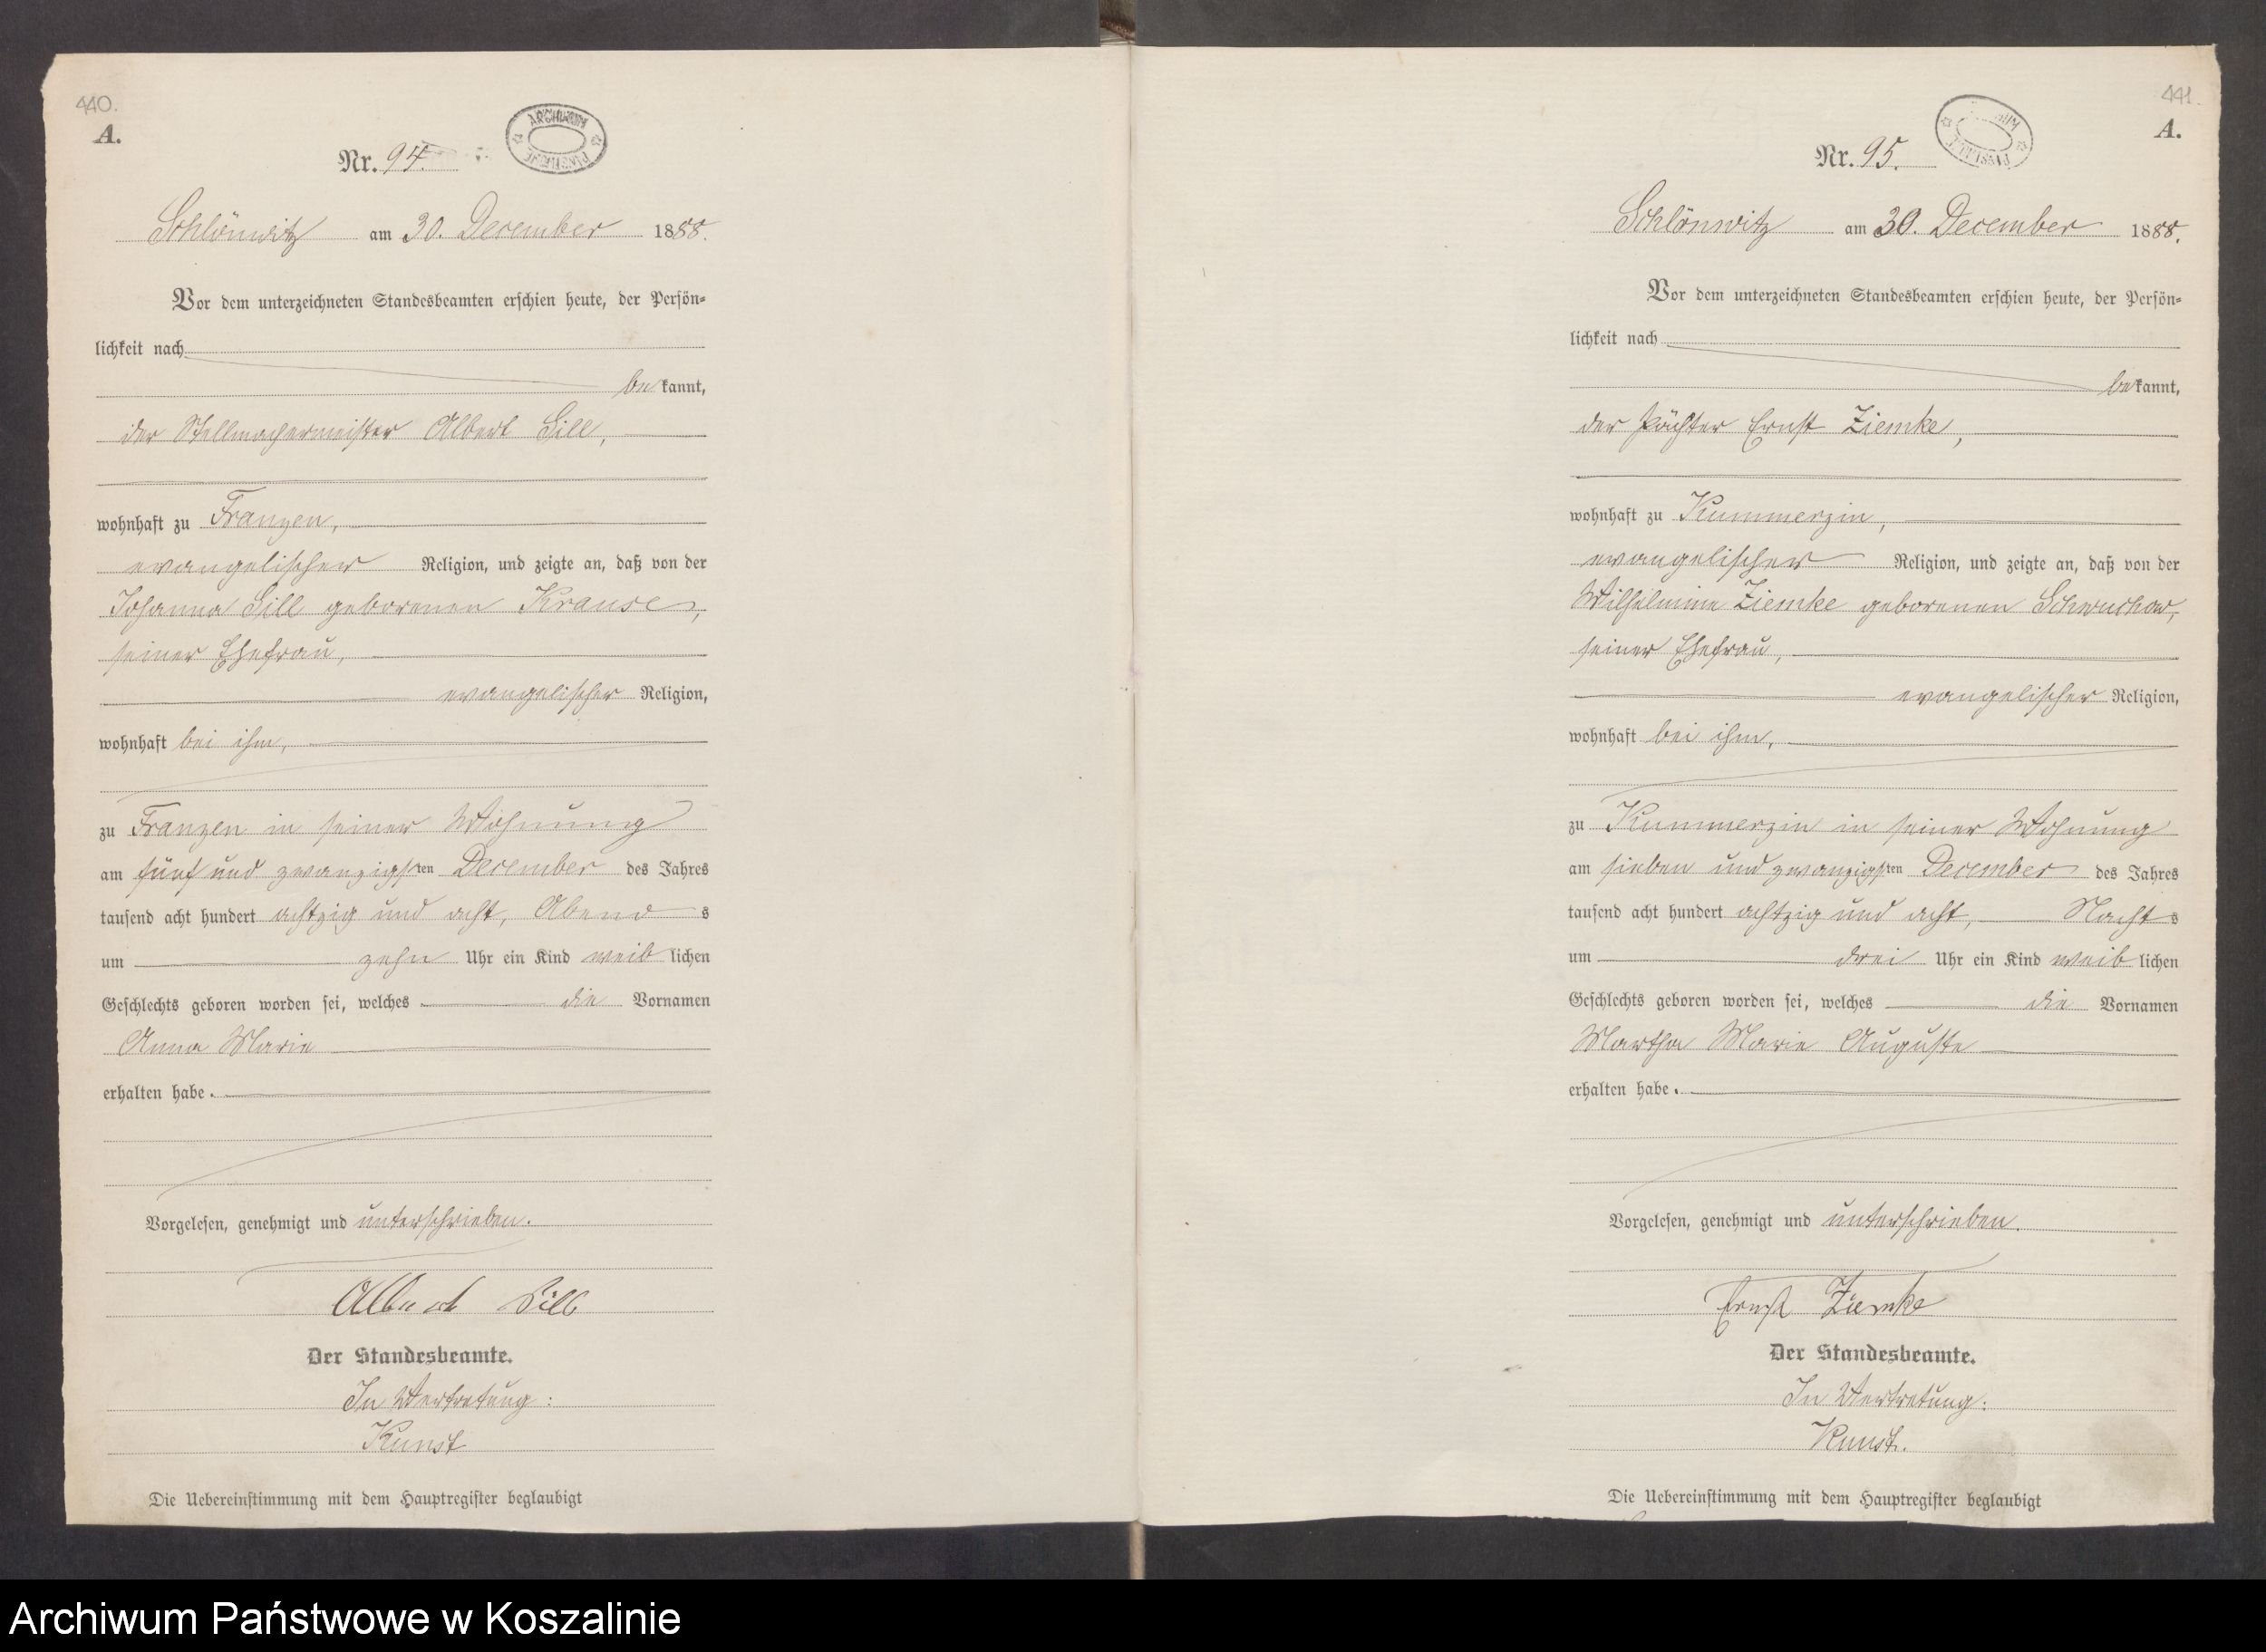 440.
A.
ARCHIWUM
Nr. 94.
Schlönwitz am 30. December 1888.
Vor dem unterzeichneten Standesbeamten erschien heute, der Persön-
lichkeit nach
bekannt,
der Stellmachermeister Albert Sill,
wohnhaft zu Franzen,
evangelischer Religion, und zeigte an, daß von der
Johanna Sill geborenen Krause,
seiner Ehefrau,
evangelischer Religion,
wohnhaft bei ihm,
zu Franzen in seiner Wohnung
am fünf und zwanzigsten December des Jahres
tausend acht hundert achtzig und acht, Abends
um zehn Uhr ein Kind weiblichen
Geschlechts geboren worden sei, welches die Vornamen
Anna Marie
erhalten habe.
Vorgelesen, genehmigt und unterschrieben.
Albert Sill
Der Standesbeamte.
In Vertretung:
Kunst
Die Uebereinstimmung mit dem Hauptregister beglaubigt
441.
A.
Nr. 95.
Schlönwitz am 30. December 1888.
Vor dem unterzeichneten Standesbeamten erschien heute, der Persön-
lichkeit nach
bekannt,
der Pächter Ernst Ziemke,
wohnhaft zu Kummerzin,
evangelischer Religion, und zeigte an, daß von der
Wilhelmine Ziemke geborenen Schwuchow,
seiner Ehefrau,
evangelischer Religion,
wohnhaft bei ihm,
zu Kummerzin in seiner Wohnung
am sieben und zwanzigsten December des Jahres
tausend acht hundert achtzig und acht, Nachts
um drei Uhr ein Kind weiblichen
Geschlechts geboren worden sei, welches die Vornamen
Martha Marie Auguste
erhalten habe.
Vorgelesen, genehmigt und unterschrieben.
Ernst Ziemke
Der Standesbeamte.
In Vertretung:
Kunst.
Die Uebereinstimmung mit dem Hauptregister beglaubigt
Archiwum Państwowe w Koszalinie